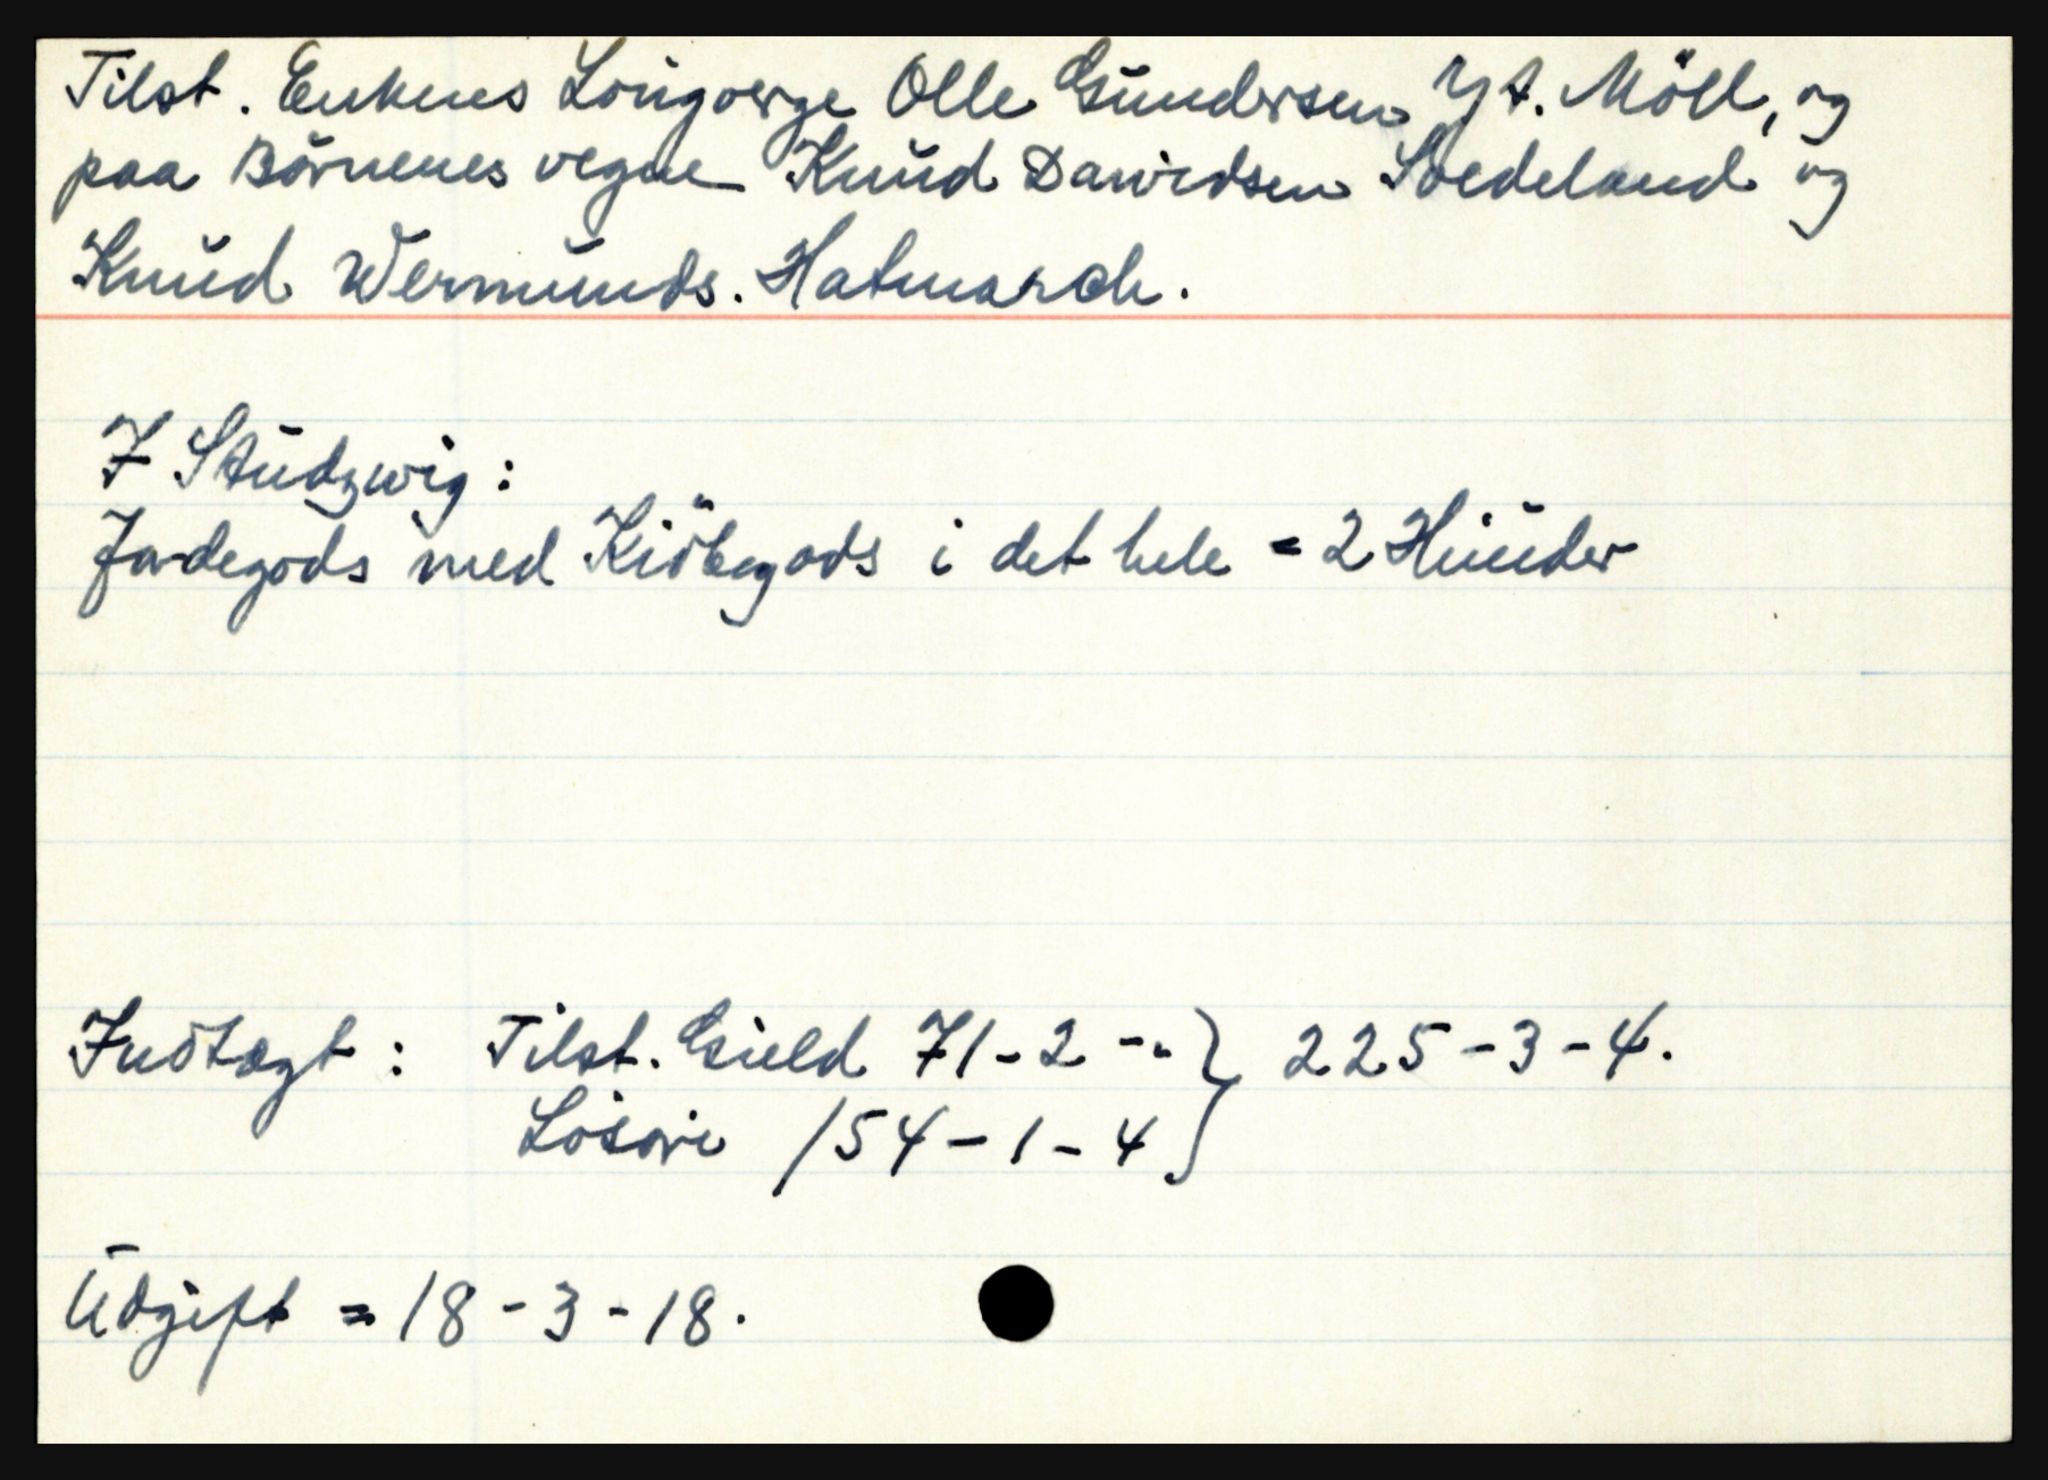 Tilst. Enkens Lougverge Olle Gundersen Yt. Möll, og
paa Börnenes vegne Knud Dawidsen Svedeland og
Knud Wermunds. Hatmarck.
I Studzwig:
Jordegods med Kiöbegods i det hele = 2 Huuder
Indtægt: Tilst. Gield 71-2 -" } 225-3-4.
Lösöre 154-1-4
Udgift = 18-3-18.